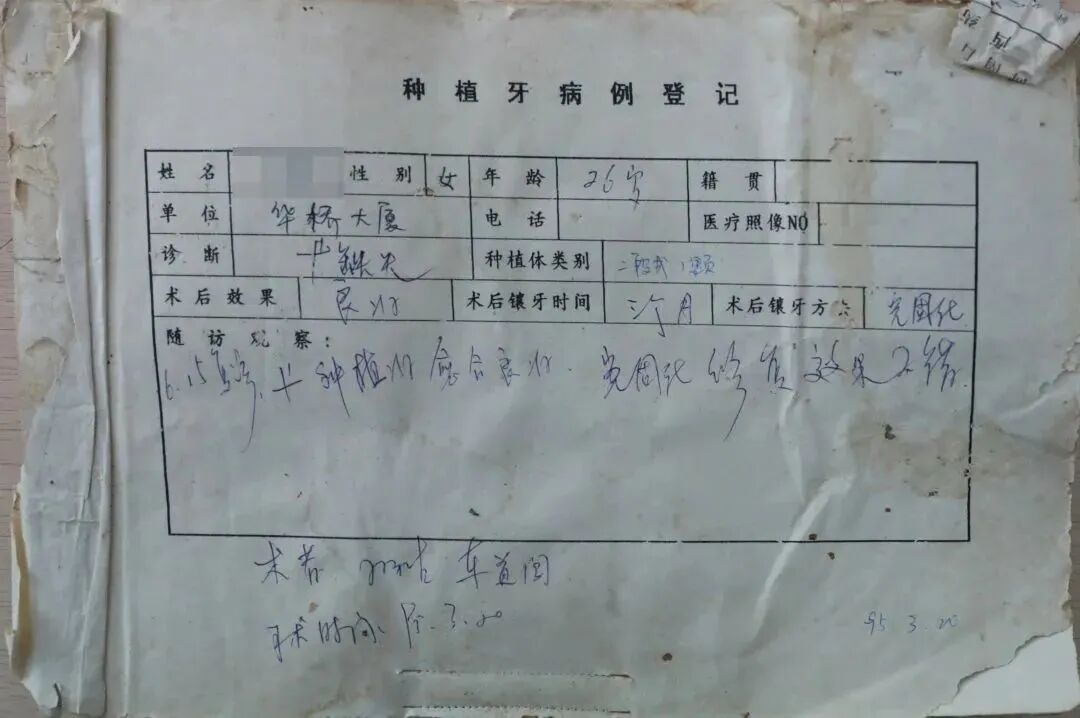 种植牙病例登记
姓名 性别 女 年龄 26岁 籍贯
单位 华桥大厦 电话 医疗照像NO
诊断 缺失 种植体类别
术后效果 良好 术后镶牙时间 三个月 术后镶牙方 完固化
随访观察：
6.15 种植 愈合良好. 完固化 修复效果不错.
术者 车道阔
手术时间 95.3.20
95.3.20